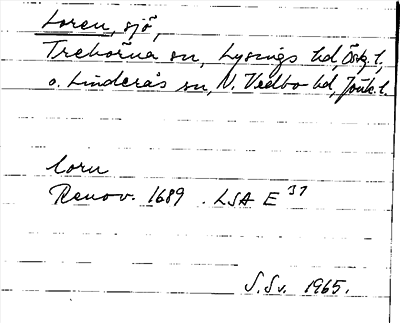 Loren, sjö,
Trehörna sn, Lysings hd, Östg. l.
o. Linderås sn, N. Vedbo hd, Jönk. l.
lorn
Renov. 1689. LSA E 37
S.Sv. 1965.